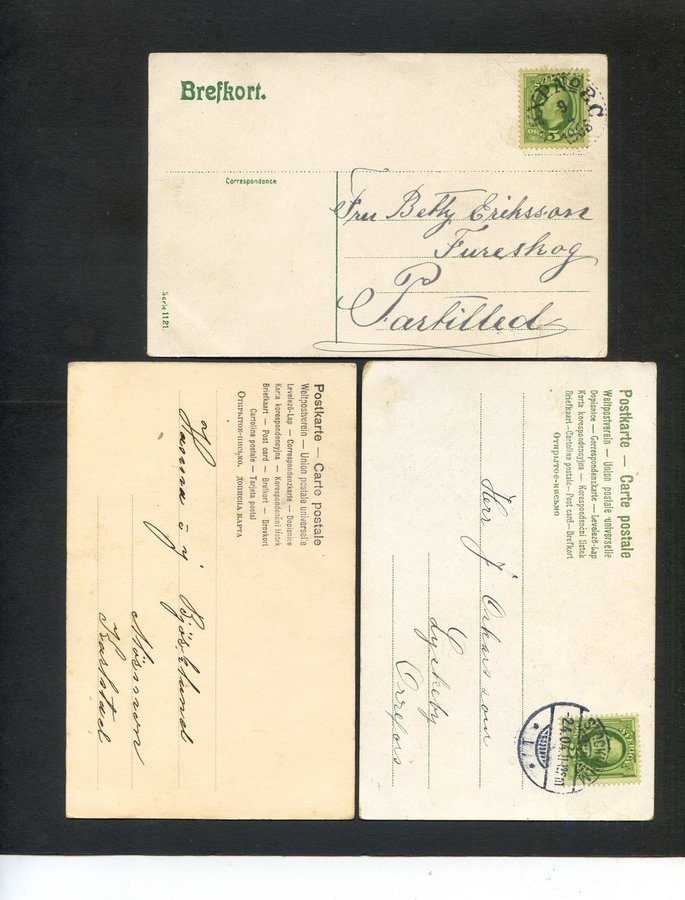 Brefkort.
PXP No 2 C
9
Correspondence
Fru Betty Eriksson
Fureskog
Partilled
Serie 1121.
Postkarte — Carte postale
Weltpostverein — Union postale universelle
Levelező-Lap — Correspondenzkarte — Dopisnice
Karta korespondencyjna — Korespondenční lístek
Briefkaart — Post card — Brefkort — Brevkort
Cartolina postale — Tarjeta postal
Открытое-письмо. дописна карта
Björklund
Karlstad
Postkarte — Carte postale
Weltpostverein — Union postale universelle
Dopisnice — Correspondenzkarte — Levelező-Lap
Karta korespondencyjna — Korespondenční lístek
Briefkaart—Cartolina postale—Post card—Brefkort
Открытое-письмо
Herr J Oskarsson
Lyckeby
Orrefors
SVERIGE
-2.4.04.
1